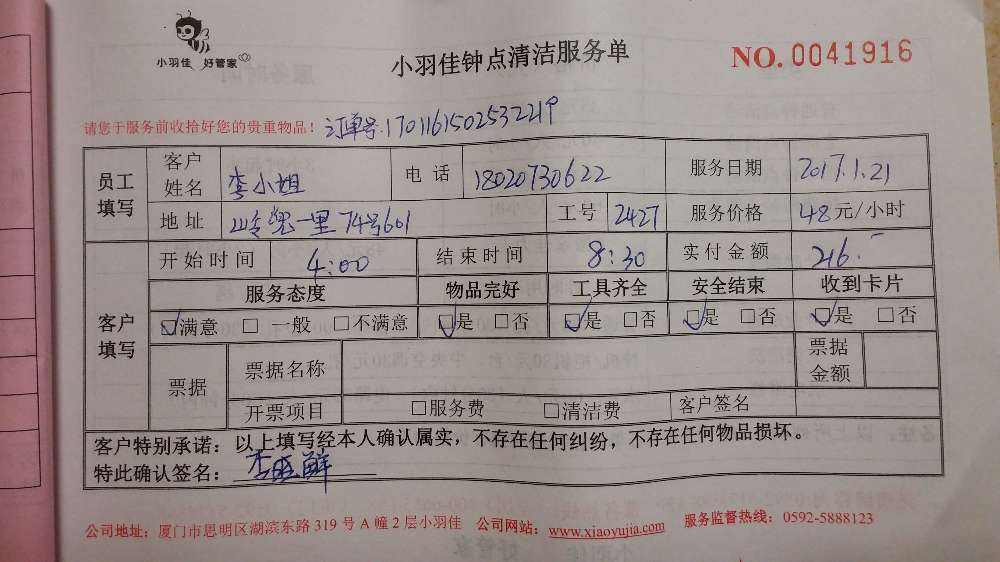 小羽佳 好管家
小羽佳钟点清洁服务单
NO. 0041916
请您于服务前收拾好您的贵重物品！ 订单号:1701161502532219
员工填写 客户姓名 李小姐 电话 18020730622 服务日期 2017.1.21
地址 岭兜一里74号601 工号 2427 服务价格 48元/小时
客户填写 开始时间 4:00 结束时间 8:30 实付金额 216
服务态度 物品完好 工具齐全 安全结束 收到卡片
☑满意 □一般 □不满意 ☑是 □否 ☑是 □否 ☑是 □否 ☑是 □否
票据 票据名称 票据金额
开票项目 □服务费 □清洁费 客户签名
客户特别承诺：以上填写经本人确认属实，不存在任何纠纷，不存在任何物品损坏。
特此确认签名： 李
公司地址：厦门市思明区湖滨东路 319 号 A 幢 2 层小羽佳 公司网站：www.xiaoyujia.com 服务监督热线：0592-5888123